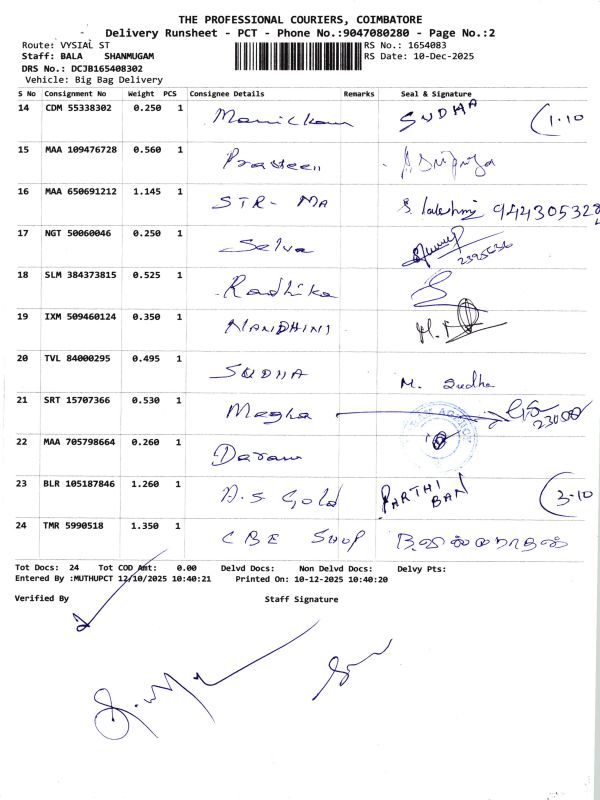 THE PROFESSIONAL COURIERS, COIMBATORE
Delivery Runsheet - PCT - Phone No.:9047080280 - Page No.:2
Route: VYSIAL ST RS No.: 1654083
Staff: BALA SHANMUGAM RS Date: 10-Dec-2025
DRS No.: DCJB165408302
Vehicle: Big Bag Delivery
S No Consignment No Weight PCS Consignee Details Remarks Seal & Signature
14 CDM 55338302 0.250 1 Manickam SUDHA 1.10
15 MAA 109476728 0.560 1 Praveen
16 MAA 650691212 1.145 1 STR- MA S. Lakshmi 944305328
17 NGT 50060046 0.250 1 Selva 2395636
18 SLM 384373815 0.525 1 Radhika
19 IXM 509460124 0.350 1 NANDHINI
20 TVL 84000295 0.495 1 SUDHA M. Sudha
21 SRT 15707366 0.530 1 Megha
22 MAA 705798664 0.260 1
23 BLR 105187846 1.260 1 A.S Gold PARTHI BAN 3.10
24 TMR 5990518 1.350 1 CBE SHOP
Tot Docs: 24 Tot COD Amt: 0.00 Delvd Docs: Non Delvd Docs: Delvy Pts:
Entered By :MUTHUPCT 12/10/2025 10:40:21 Printed On: 10-12-2025 10:40:20
Verified By Staff Signature